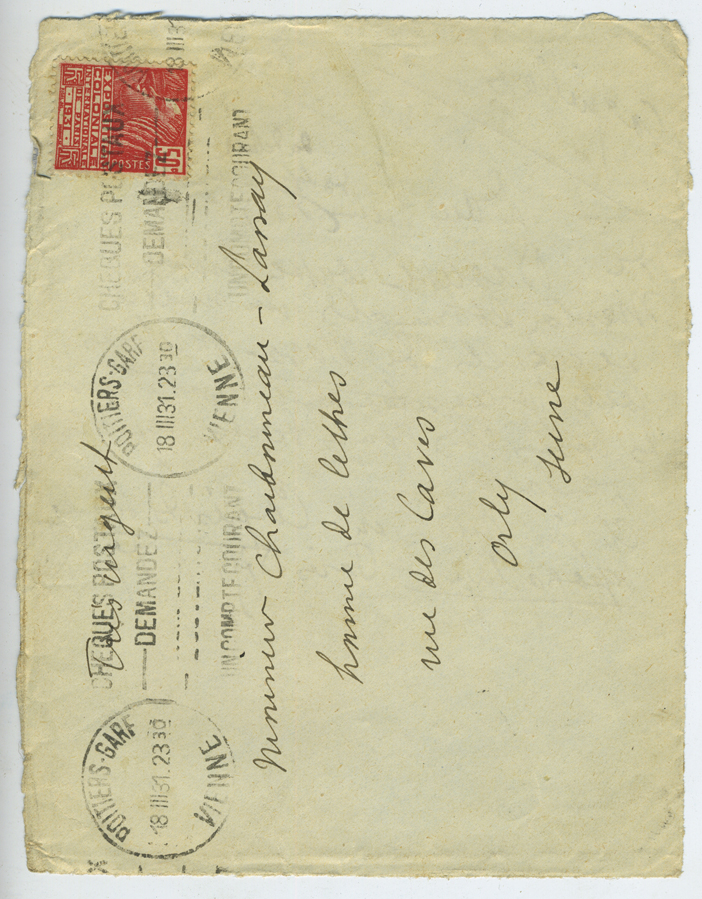 EXPOSITION
COLONIALE
INTERNATIONALE
DE PARIS
1931
POSTES
50c
CHEQUES POSTAUX
DEMANDEZ
UN COMPTE COURANT
POITIERS-GARE
18 III 31. 23 30
VIENNE
CHEQUES POSTAUX
DEMANDEZ
UN COMPTE COURANT
POITIERS-GARE
18 III 31. 23 30
VIENNE
Très urgent
Monsieur Charbonneau - Lassay
homme de lettres
rue des Caves
Orly
Seine